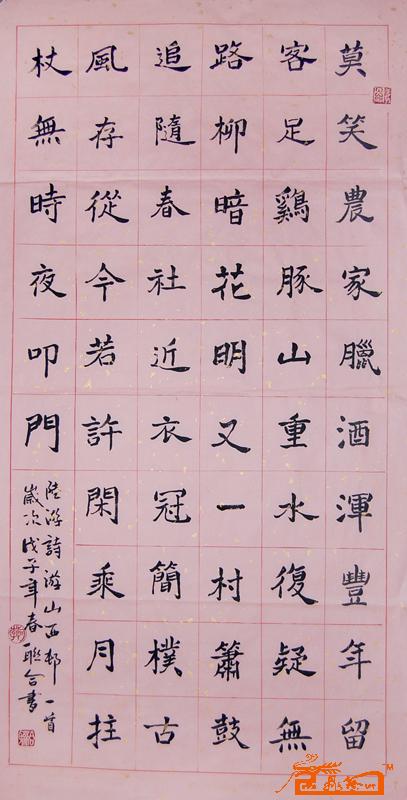 莫笑農家臘酒渾豐年留
客足鷄豚山重水復疑無
路柳暗花明又一村簫鼓
追隨春社近衣冠簡樸古
風存從今若許閑乘月拄
杖無時夜叩門
陸游詩游山西邨一首
歲次戊子年春聯合書